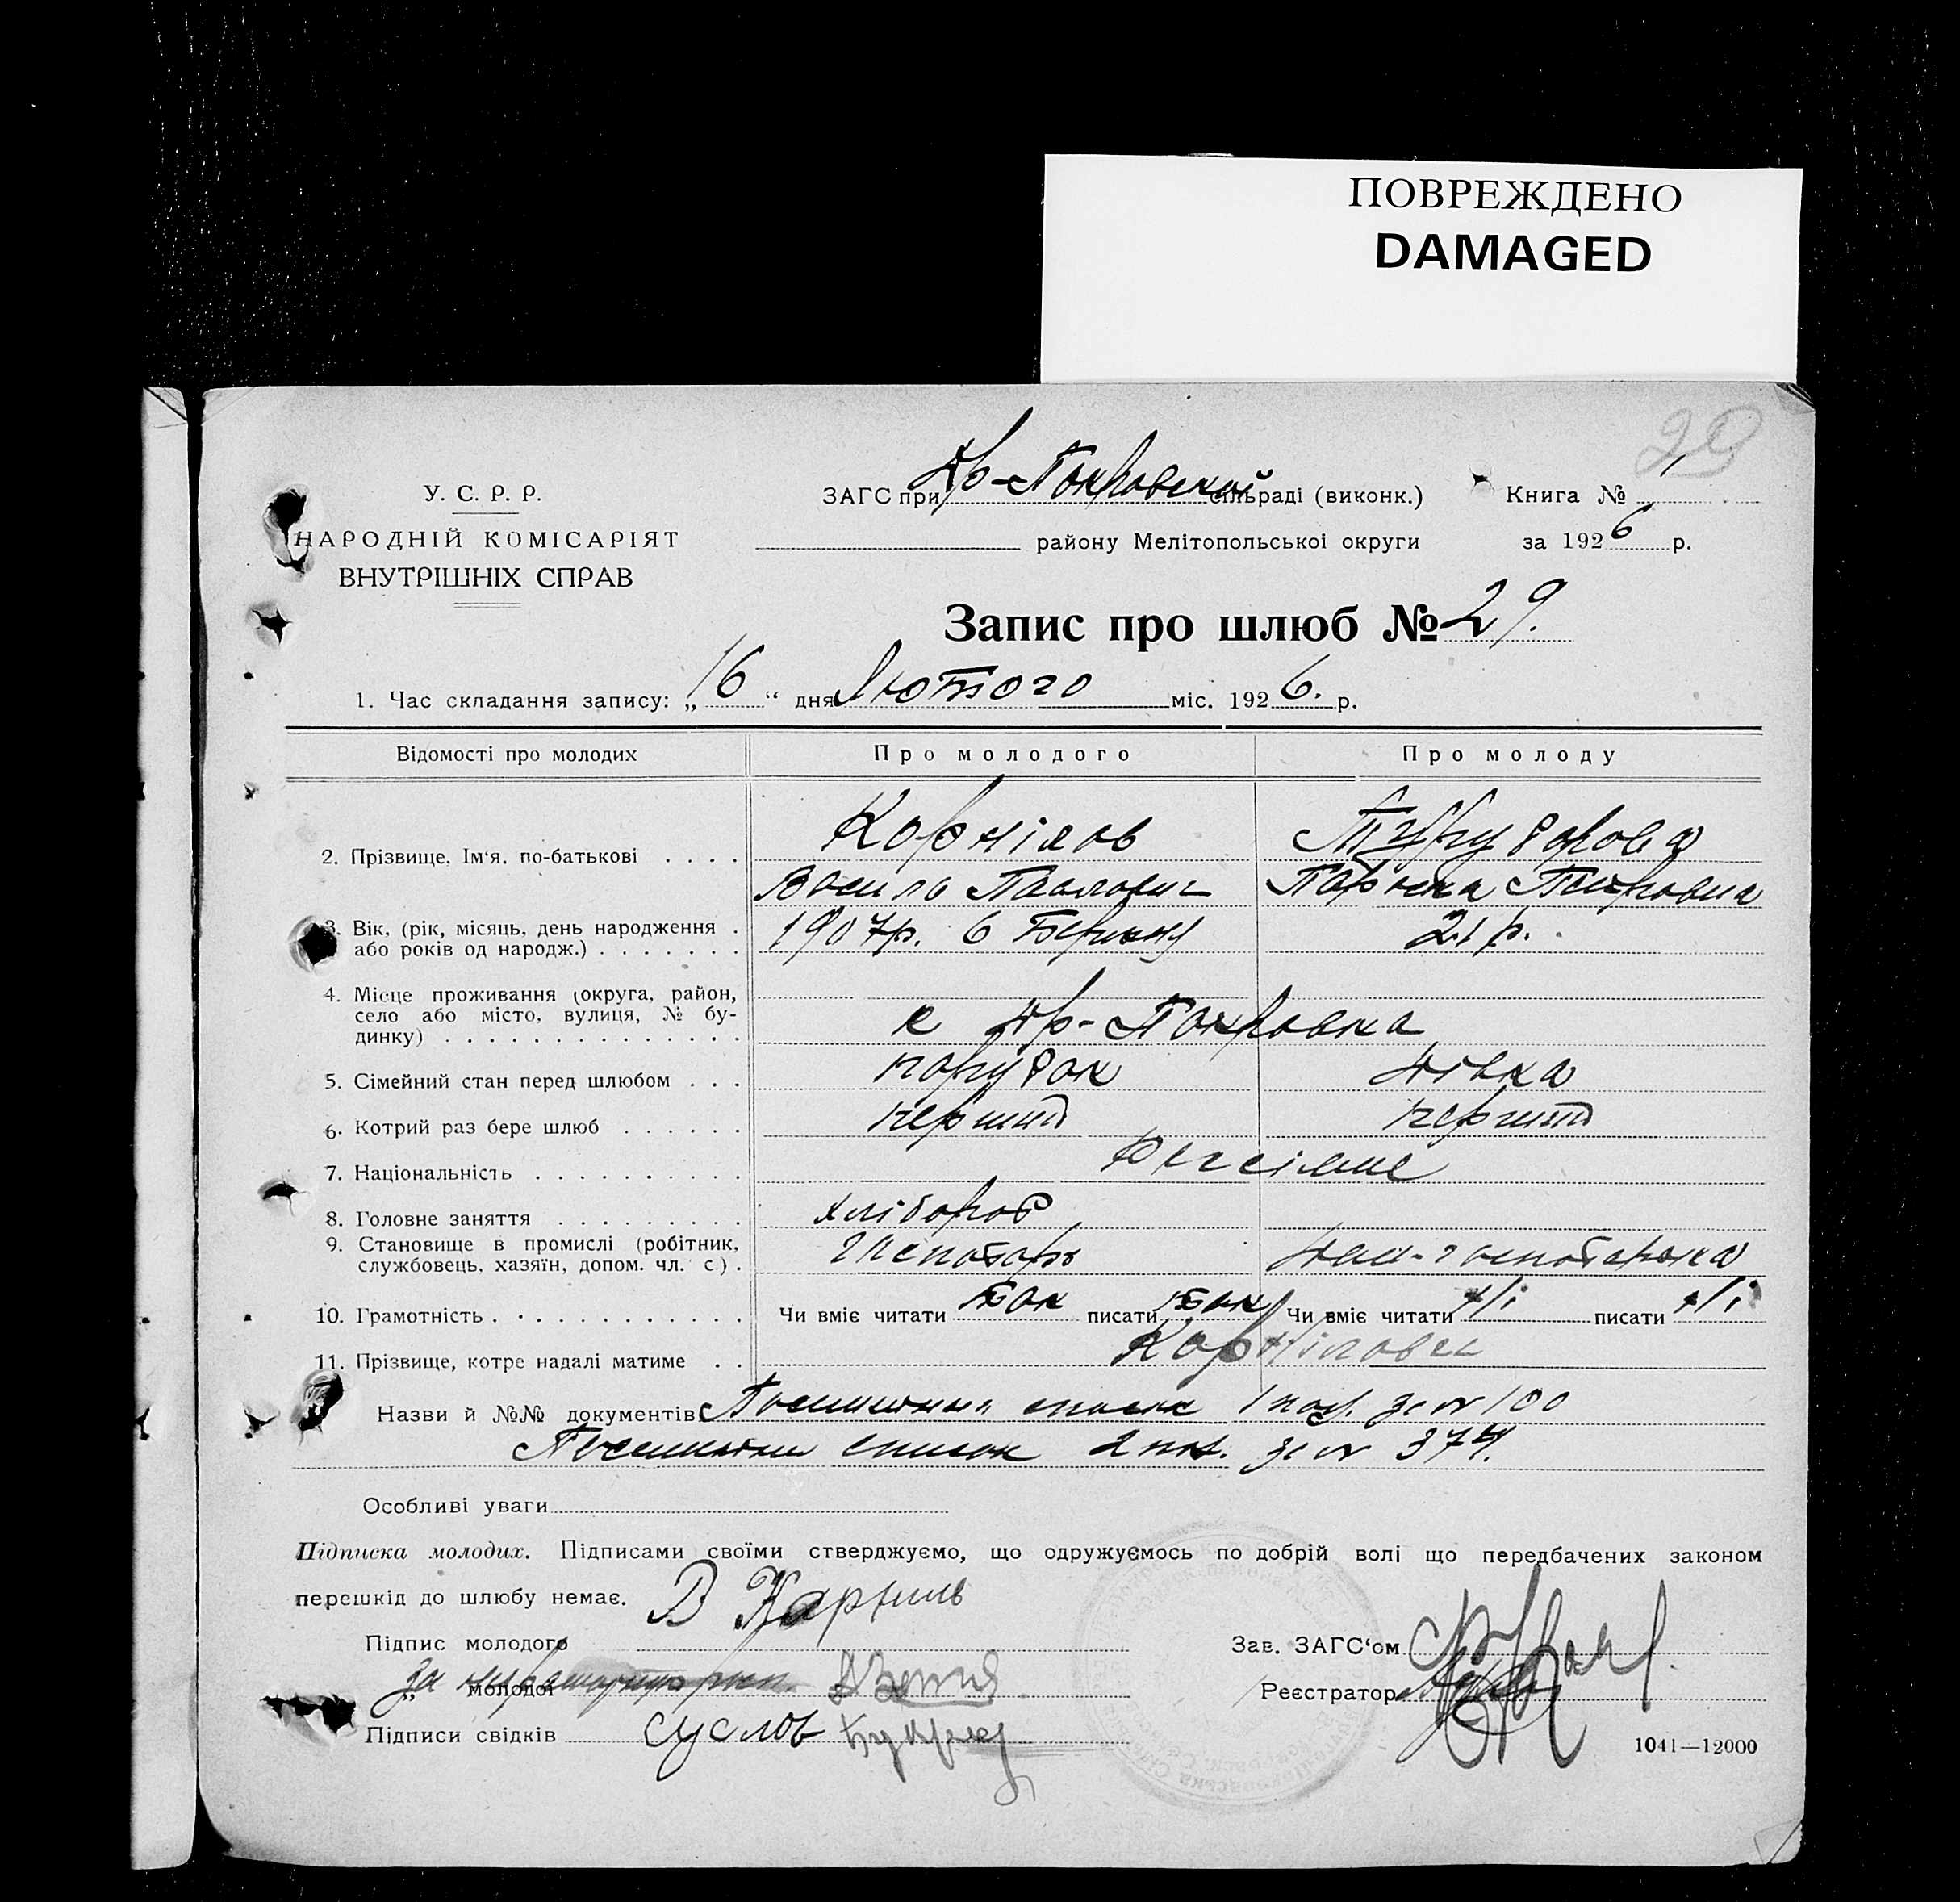 ПОВРЕЖДЕНО
DAMAGED
29
У. С. Р. Р.
НАРОДНІЙ КОМІСАРІЯТ
ВНУТРІШНІХ СПРАВ
ЗАГС при Нв-Покровской сільраді (виконк.)
району Мелітопольської округи
Книга № 1
за 1926 р.
Запис про шлюб № 29.
1. Час складання запису: „16“ дня Лютого міс. 1926. р.
Відомості про молодих Про молодого Про молоду
2. Прізвище, Ім‘я, по-батькові . . . . Корнілов
Василь Павлович Петровна
3. Вік, (рік, місяць, день народження . 1907р. 6 21 р.
або років од народж.) . . . . . . .
4. Місце проживання (округа, район,
село або місто, вулиця, № бу-
динку) . . . . . . . . . . . . . . Нв-Покровка
5. Сімейний стан перед шлюбом . . . парубок дівка
6. Котрий раз бере шлюб . . . . . . перший перший
7. Національність . . . . . . . . . .
8. Головне заняття . . . . . . . . . хлібороб
9. Становище в промислі (робітник, господарь дом-господарка
службовець, хазяїн, допом. чл. с.) .
10. Грамотність . . . . . . . . . . . . Чи вміє читати так писати так Чи вміє читати н/і писати н/і
11. Прізвище, котре надалі матиме . . Корнілове
Назви й №№ документів список за № 100
список за № 374.
Особливі уваги
Підписка молодих. Підписами своїми стверджуємо, що одружуємось по добрій волі що передбачених законом
перешкід до шлюбу немає.
Підпис молодого В Карниль
„ молодої За
Підписи свідків суслов
Зав. ЗАГС‘ом
Реєстратор
1041—12000